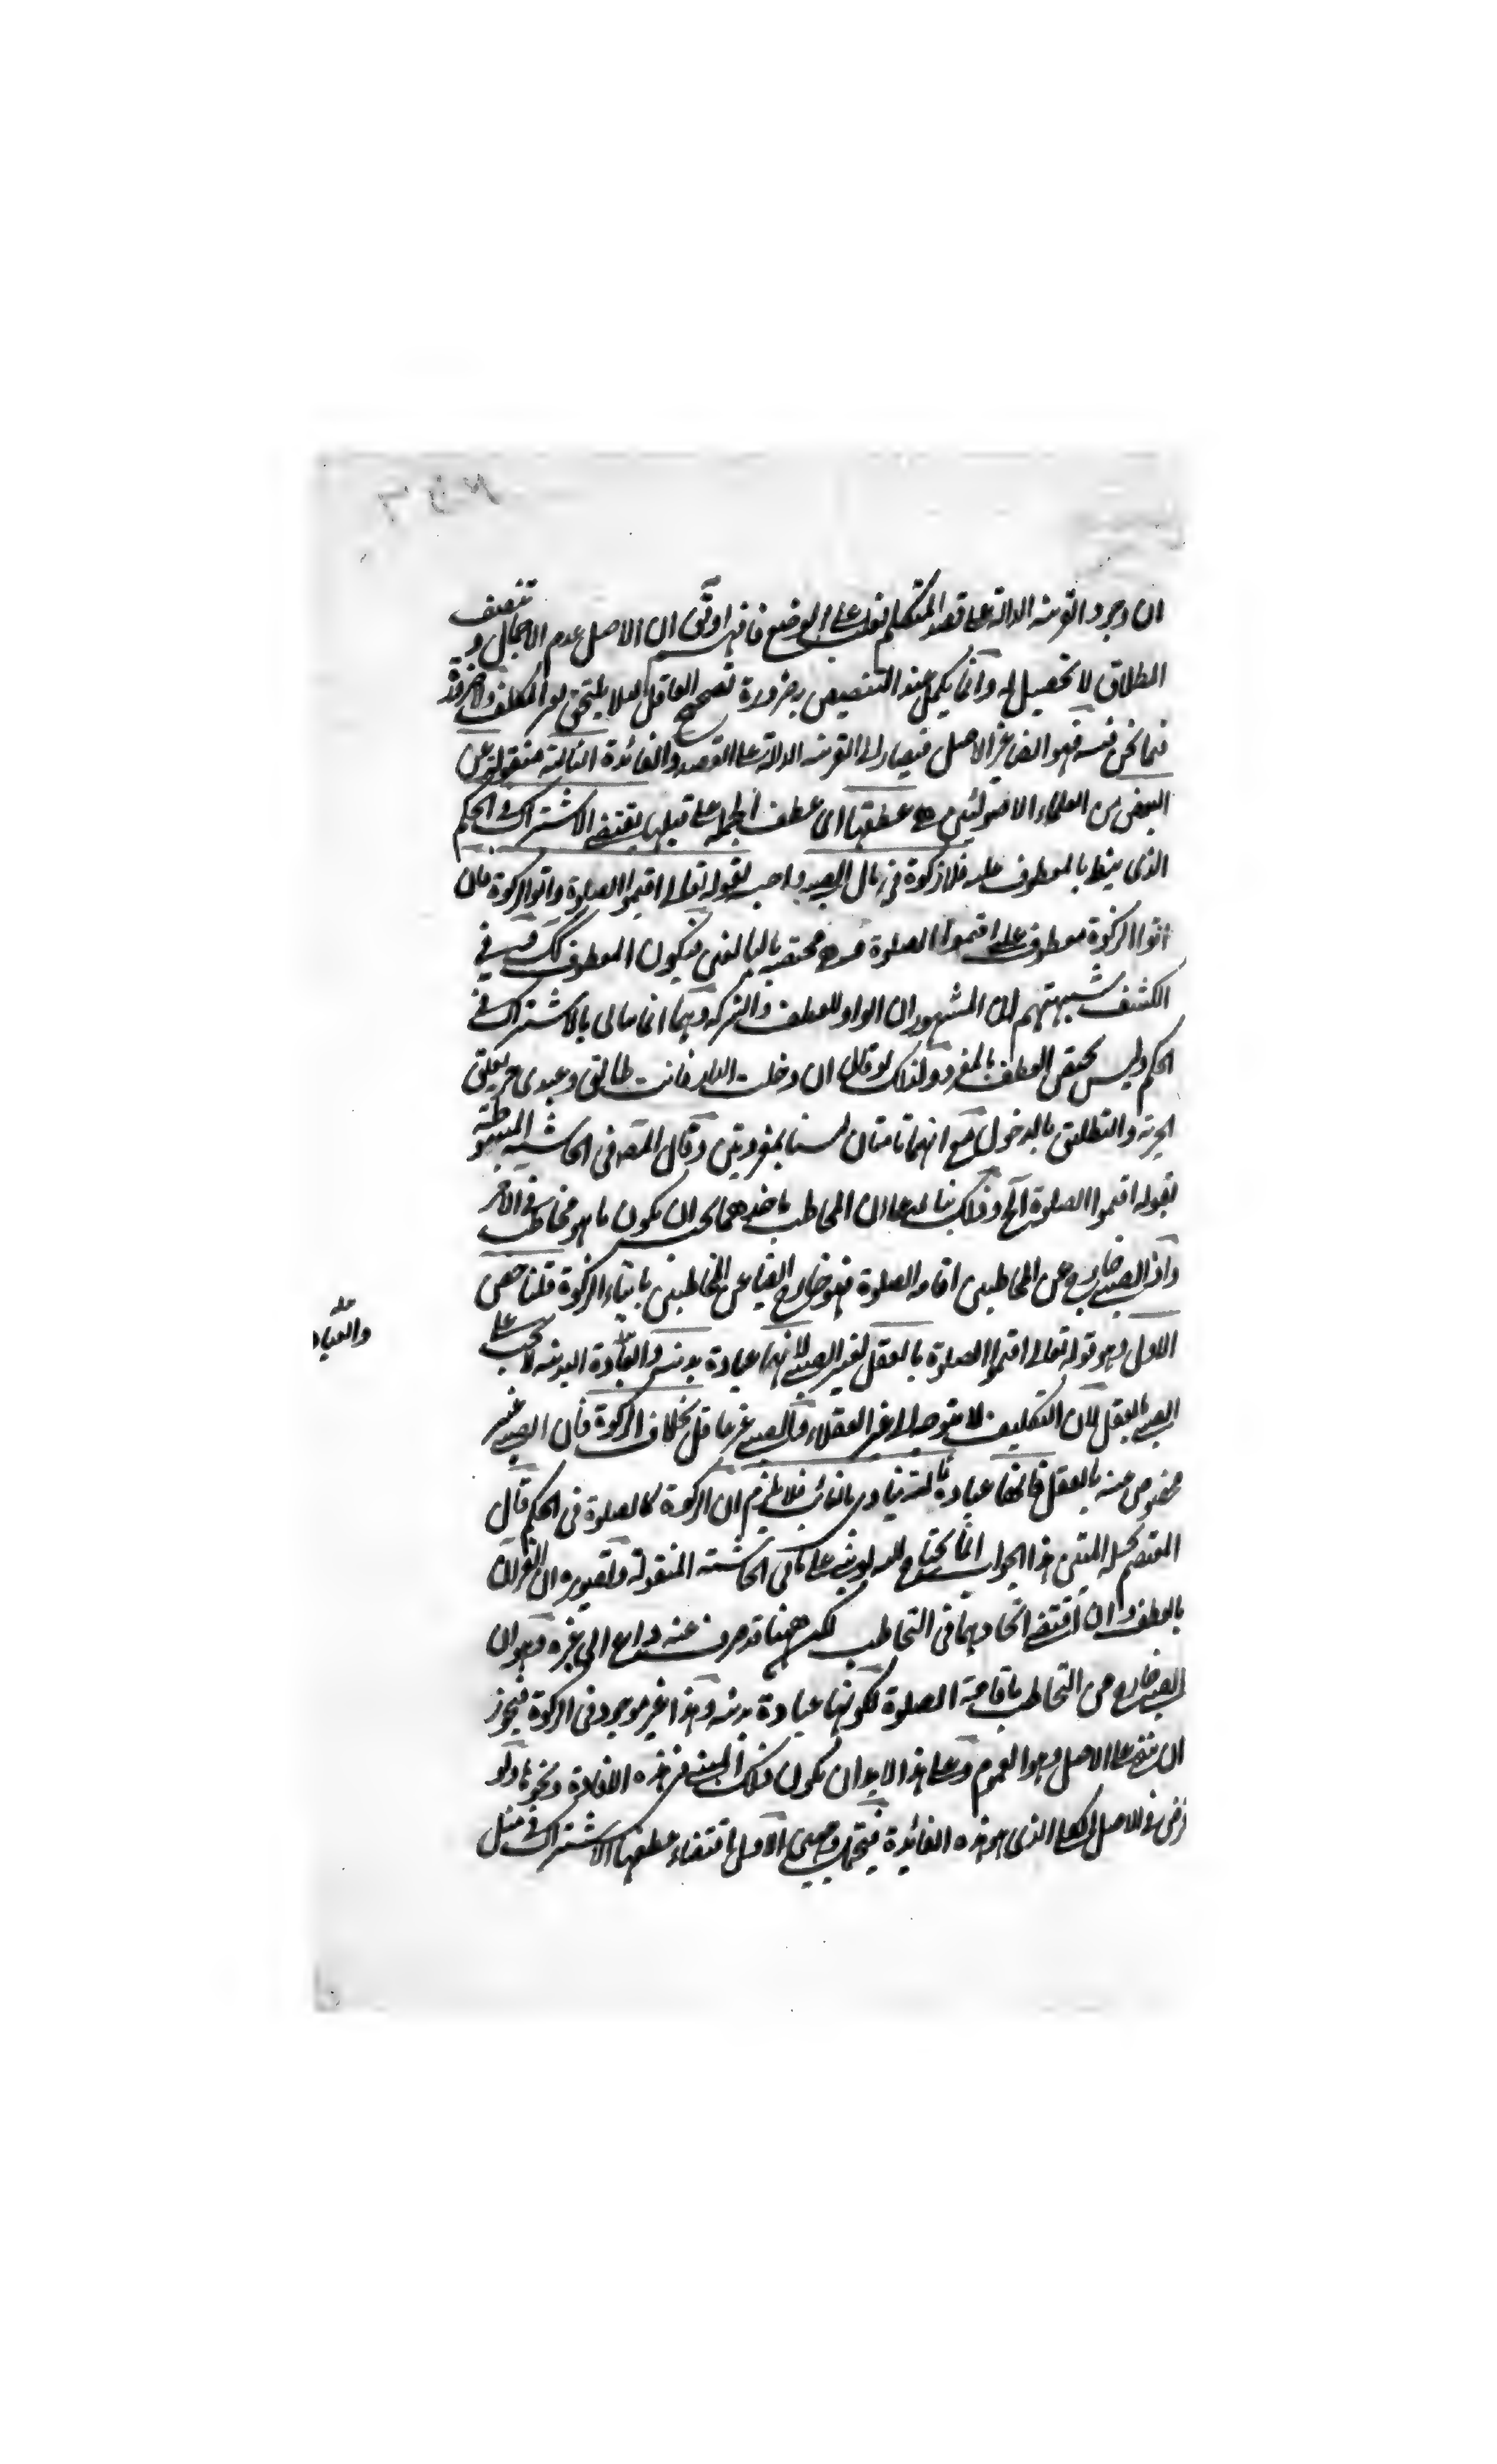 ان وجود القرينة الدالة على قصد المتكلم تغلب على الوضع فافهم اوتق ان الاصل عدم الاجمال و تنصيف
الطلاق لا تحصيل له وانما يكمل عند التنصيص بضرورة تصحيح العاقل لئلا يلتحق المكلف ولا ضرورة
فيما نحن فيه فهو الغير الاصل فيصار الى القرينة الدالة على القصد والفائدة الثالثة منقولة عن
البعض من العلماء الاصوليين عطفها اى عطف الجملة على قبلها يقتضى الاشتراك فى الحكم
الذى بالمعطوف عليه فلا زكوة فى مال الصبى واجبة لقوله تعالى اقيموا الصلوة واتوا الزكوة فان
اتوا الزكوة معطوف على اقيموا الصلوة مختصة بالبالغين فيكون المعطوف كك فى
الكشف شبهتهم ان المشهور ان الواو للعطف والشركة وهما انما بالاشتراك فى
الحكم وليس يختص العطف بالمفرد ولذلك لو قال ان دخلت الدار فانت طالق وعبدى حر يعلق
الحرية والتطليق بالدخول مع انهما تامتان ليستا بمفردتين وقال المصه فى الحاشية المبسوطة
لقوله اقيموا الصلوة الخ وذلك بناء على ان المخاطب باحدهما يجب ان يكون ما هو مخاطب فى الاخر
واذ الصبى خارج عن المخاطبين اقامة الصلوة فهو خارج ايضا عن المخاطبين بايتاء الزكوة قلنا خص
الاول وهو قوله تعالى اقيموا الصلوة بالعقل لغير الصبى لانها عبادة بدنية والعبادة البدنية لا تجب على
الصبى بالعقل لان التكليف لا يتوجه الى غير العقلاء والصبى غير عاقل بخلاف الزكوة فان الصبى غير
مخصوص عنه بالعقل فانها عبادة مالية تتادى بالنائب فلا يلزم ان الزكوة كالصلوة فى الحكم قال
المعتصم بحبله المتين هذا الجواب انما يحتاج اليه لو بنى على ما فى الحاشية المنقولة وتصويره ان القران
بالعطف وان اقتضى اتحادهما فى التخاطب لكن ههنا قد صرف عنه داع الى غيره وهو ان
الصبى خارج من التخاطب باقامة الصلوة لكونها عبادة بدنية وهذا غير موجود فى الزكوة فيجوز
ان يبقى على الاصل وهو العموم وعلى هذا لا بد ان يكون ذلك المبنى فى هذه الافادة ونحوها ولو
فرض الاصل الكلى الذى هو هذه الفائدة فيتحمل وجهين الاول اقتضاء عطفها الاشتراك فى مثل
عله
والعباد